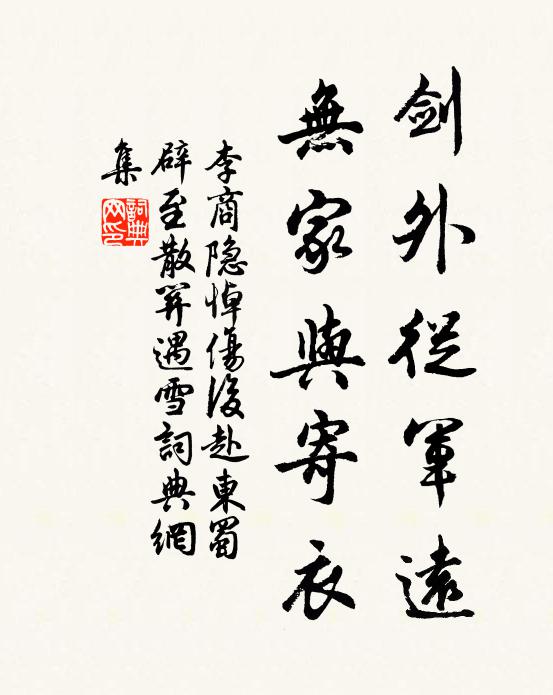 劍外從軍遠
無家與寄衣
李商隐悼傷後赴東蜀
辟至散關遇雪詞典網
集
詞典
网印